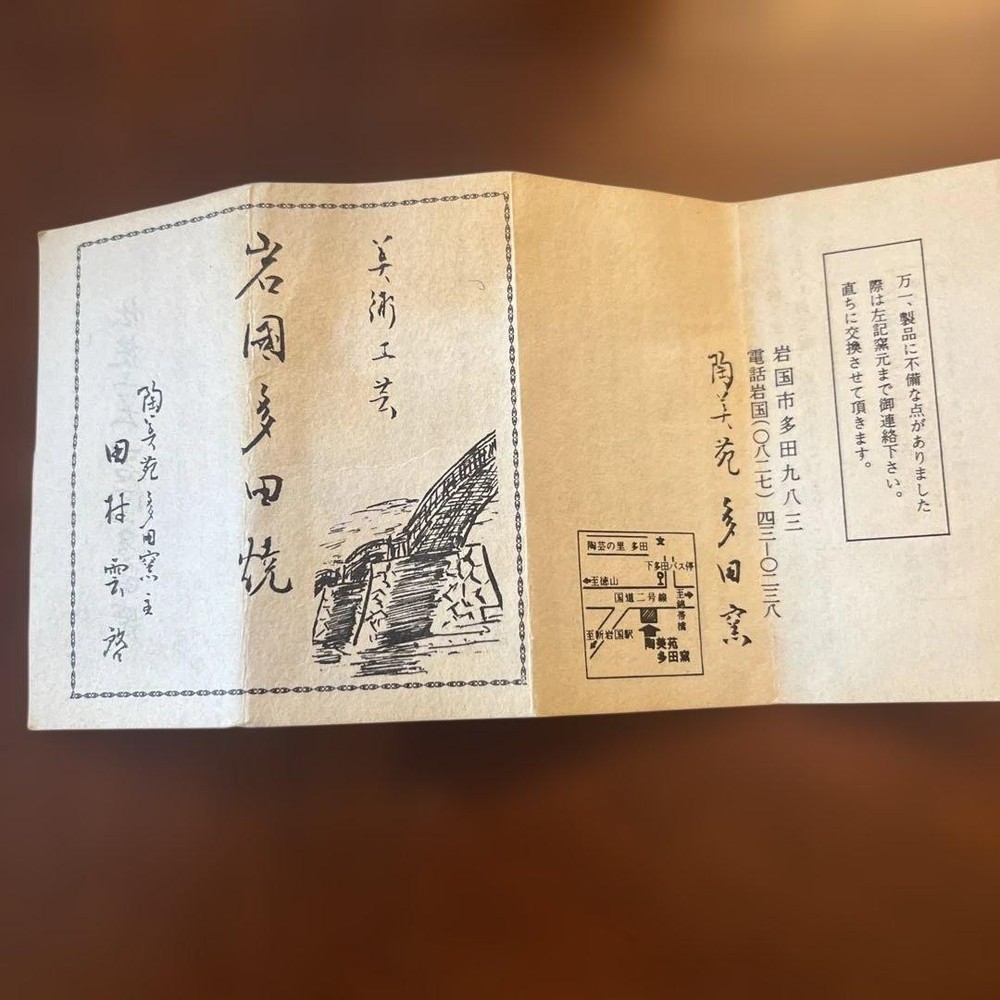 万一、製品に不備な点がありました
際は左記窯元まで御連絡下さい。
直ちに交換させて頂きます。
岩国市多田九八三
電話岩国(〇八二七)四三ー〇二三八
陶美苑 多田窯
陶芸の里 多田
下多田バス停
至徳山
国道二号線
至錦帯橋
至新岩国駅
陶美苑
多田窯
美術工芸
岩國多田焼
陶美苑多田窯主
田村雲啓